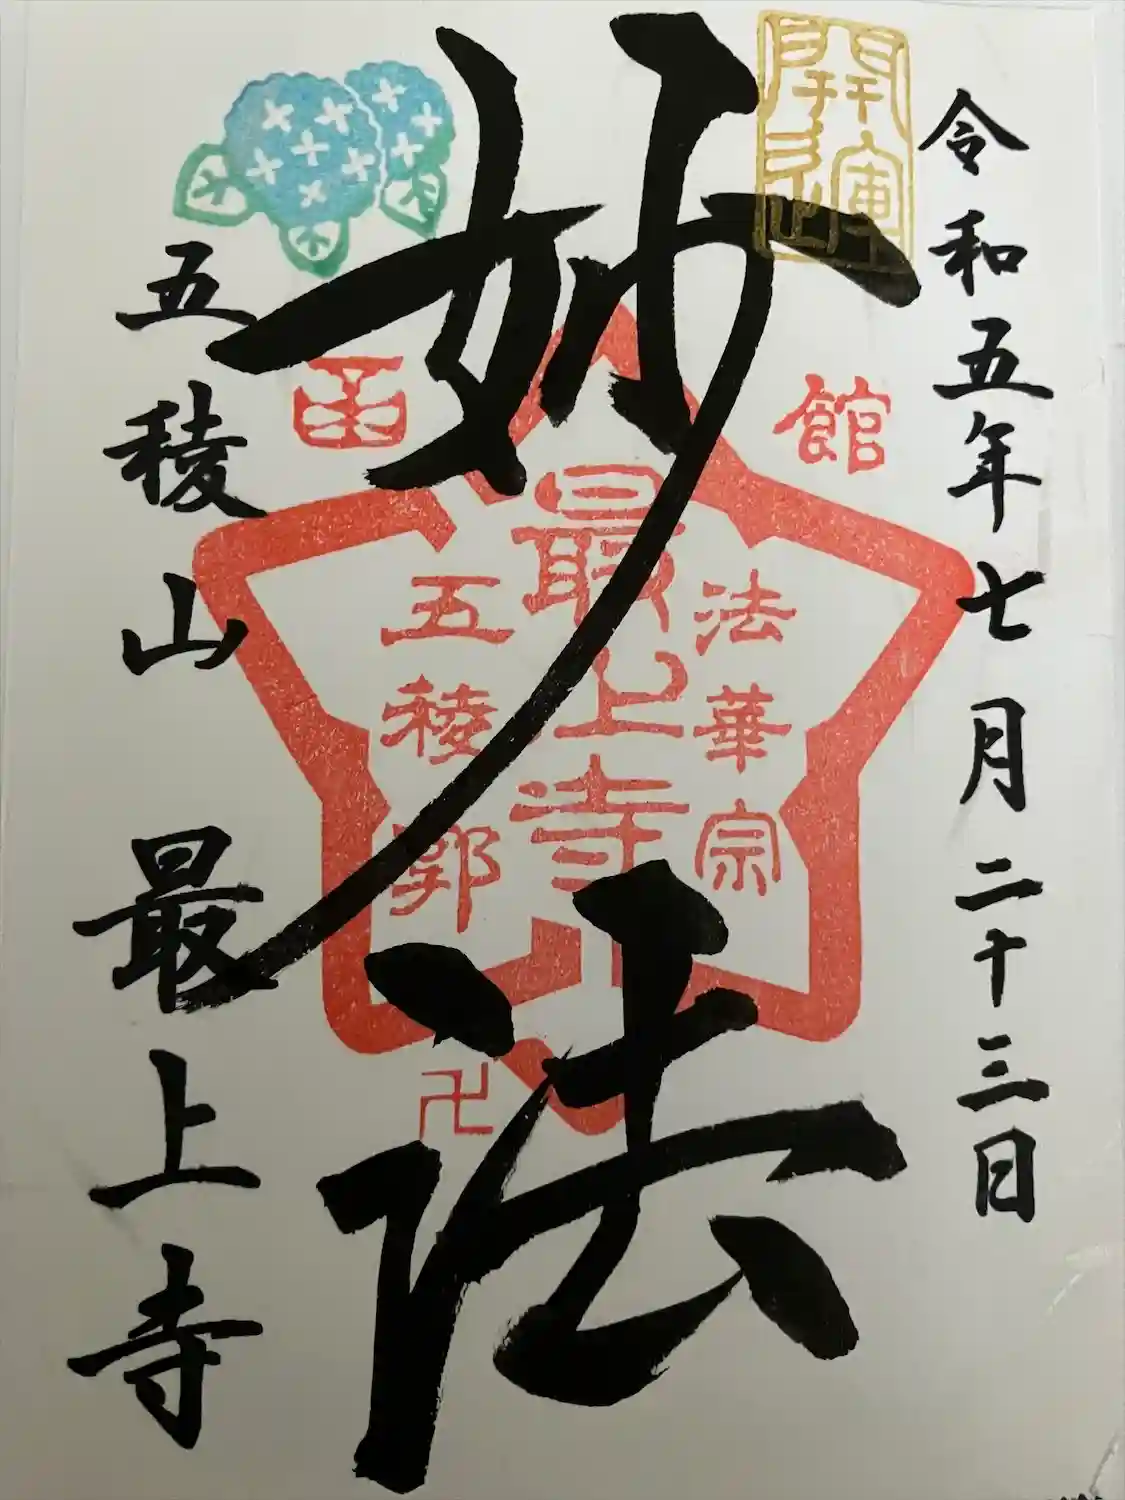 令和五年七月二十三日
妙法
五稜山 最上寺
開運
函館
法華宗
最上寺
五稜郭
卍